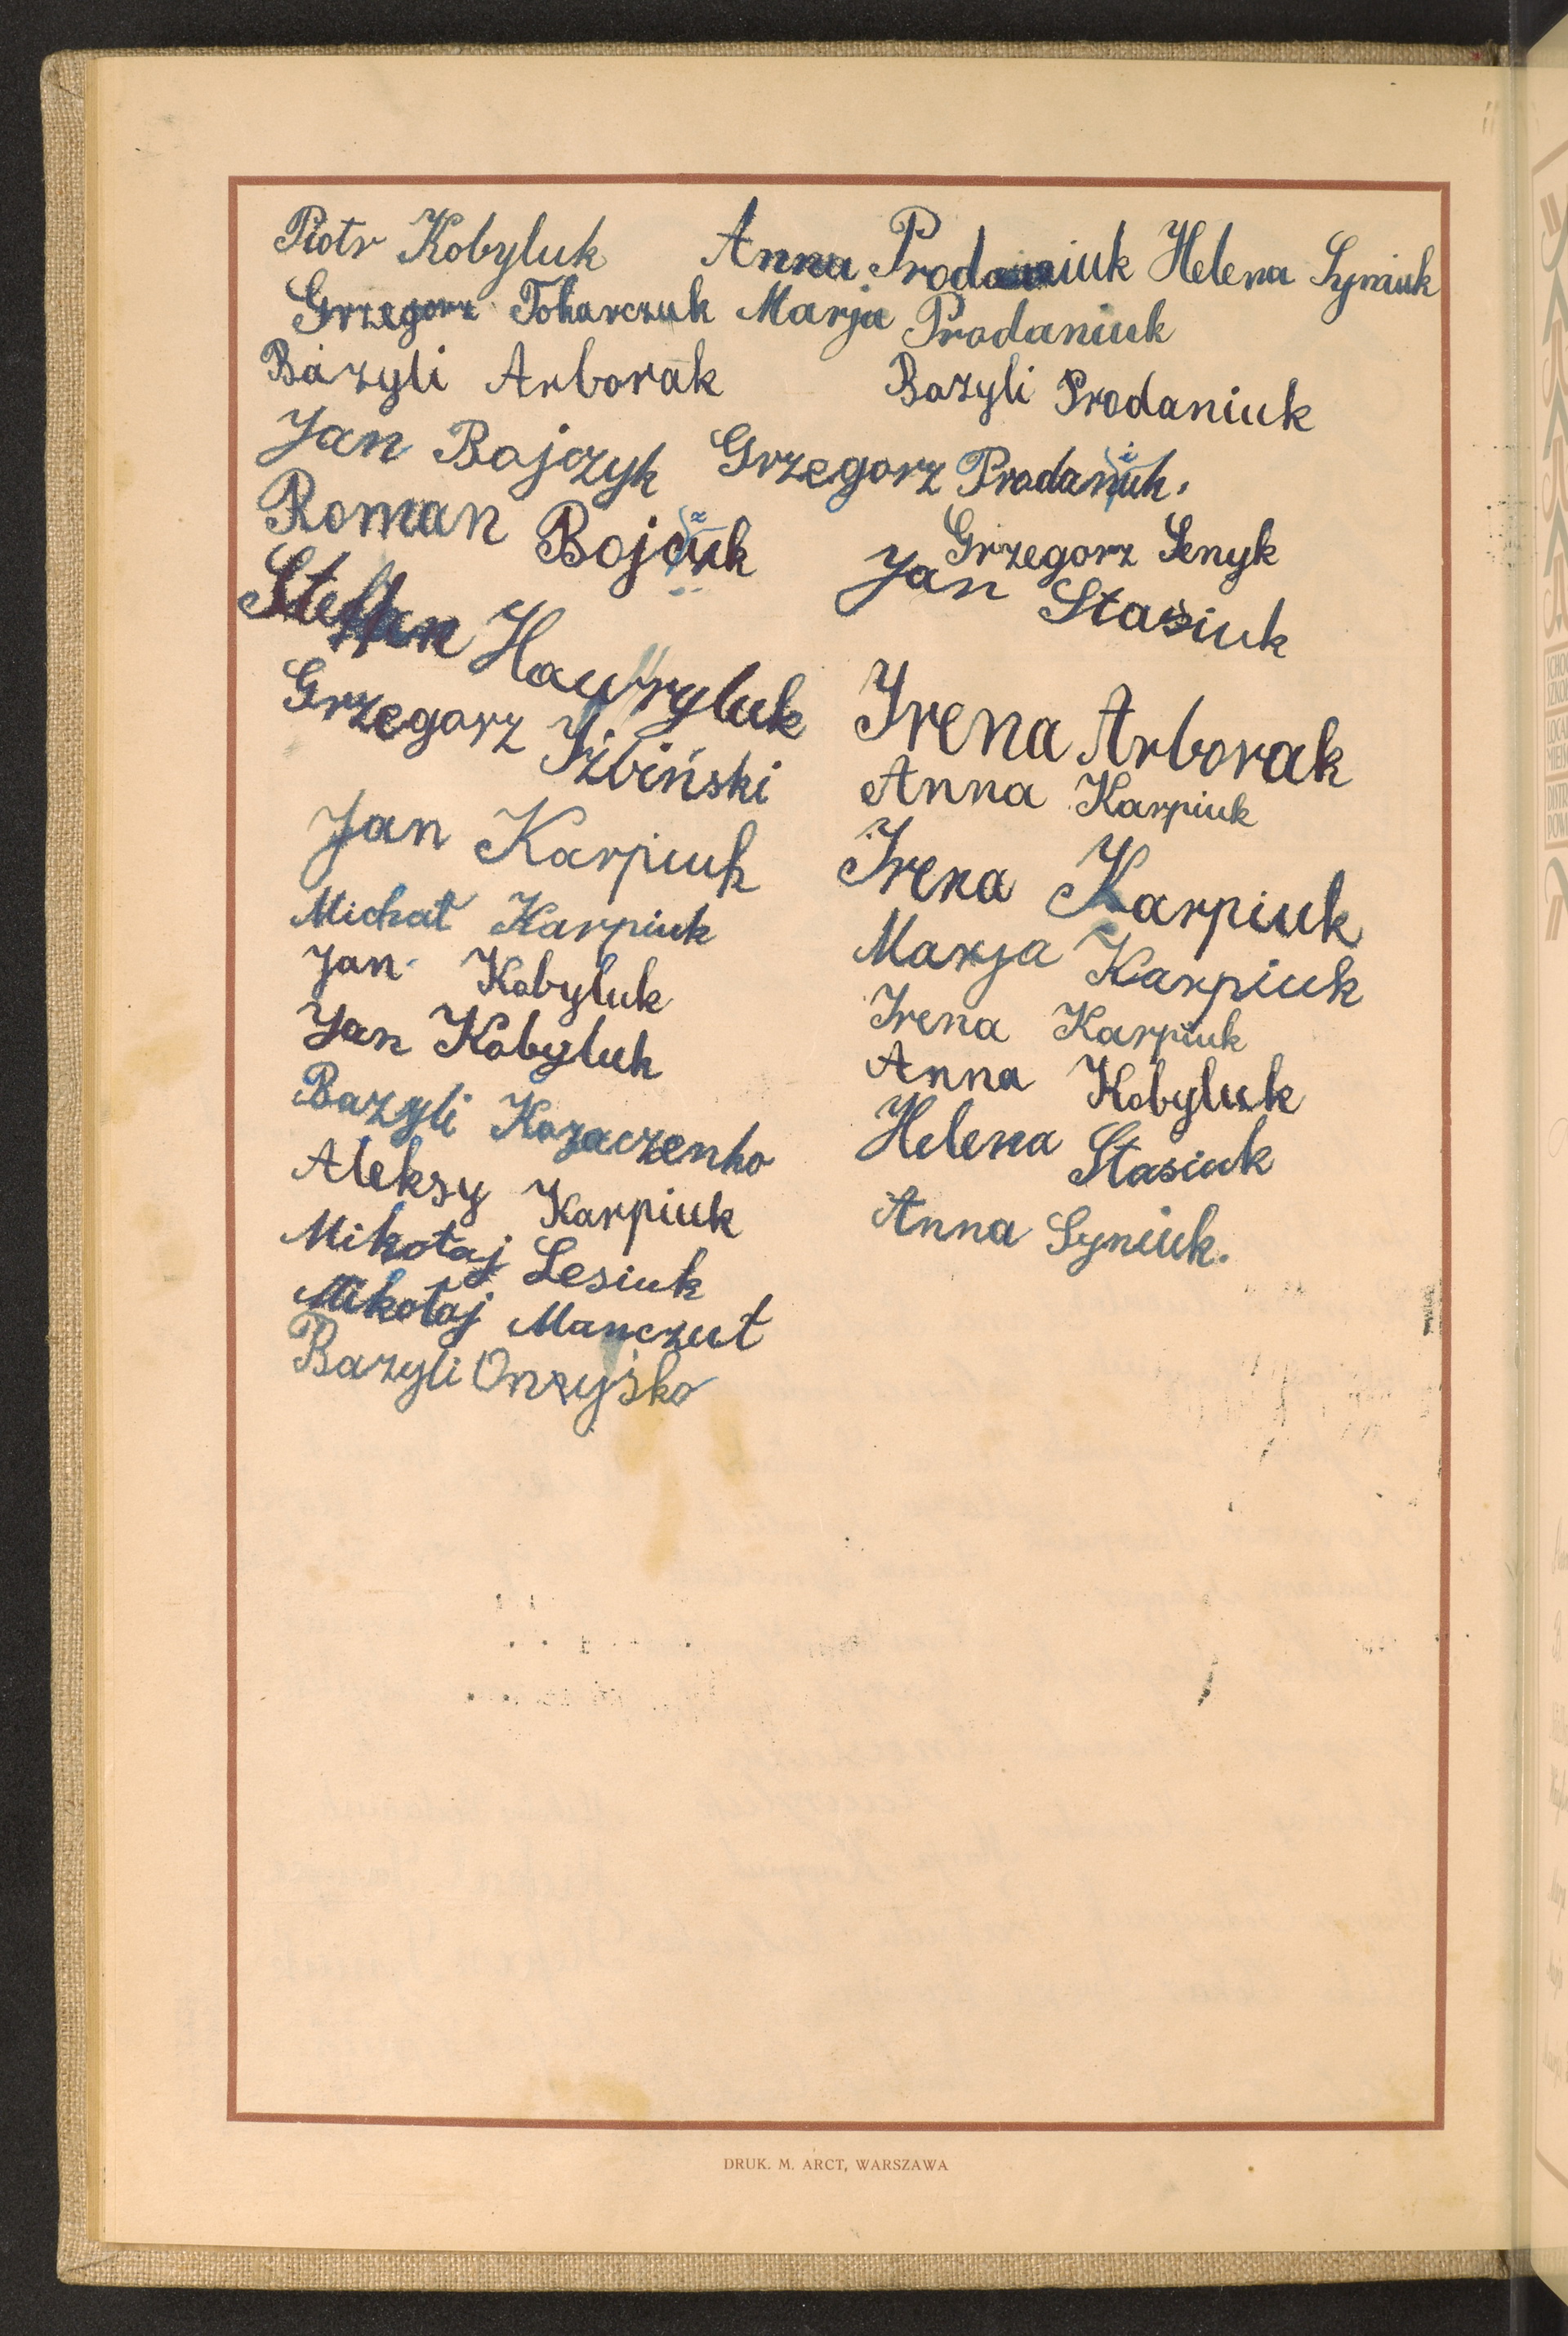 Piotr Kobyluk Anna Prodaniuk Helena Syniuk
Grzegorz Tokarczuk Marja Prodaniuk
Bazyli Arborak Bazyli Prodaniuk
Jan Bojczyk Grzegorz Prodaniuk.
Roman Bojczuk Grzegorz Senyk
Jan Stasiuk
Stefan Hawryluk
Grzegorz Izbiński
Jan Karpiuk
Michał Karpiuk
Jan Kobyluk
Jan Kobyluk
Bazyli Kozaczenko
Aleksy Karpiuk
Mikołaj Lesiuk
Mikołaj Manczut
Bazyli Onzyśko
Irena Arborak
Anna Karpiuk
Irena Karpiuk
Marja Karpiuk
Irena Karpiuk
Anna Kobyluk
Helena Stasiuk
Anna Syniuk.
DRUK. M. ARCT, WARSZAWA